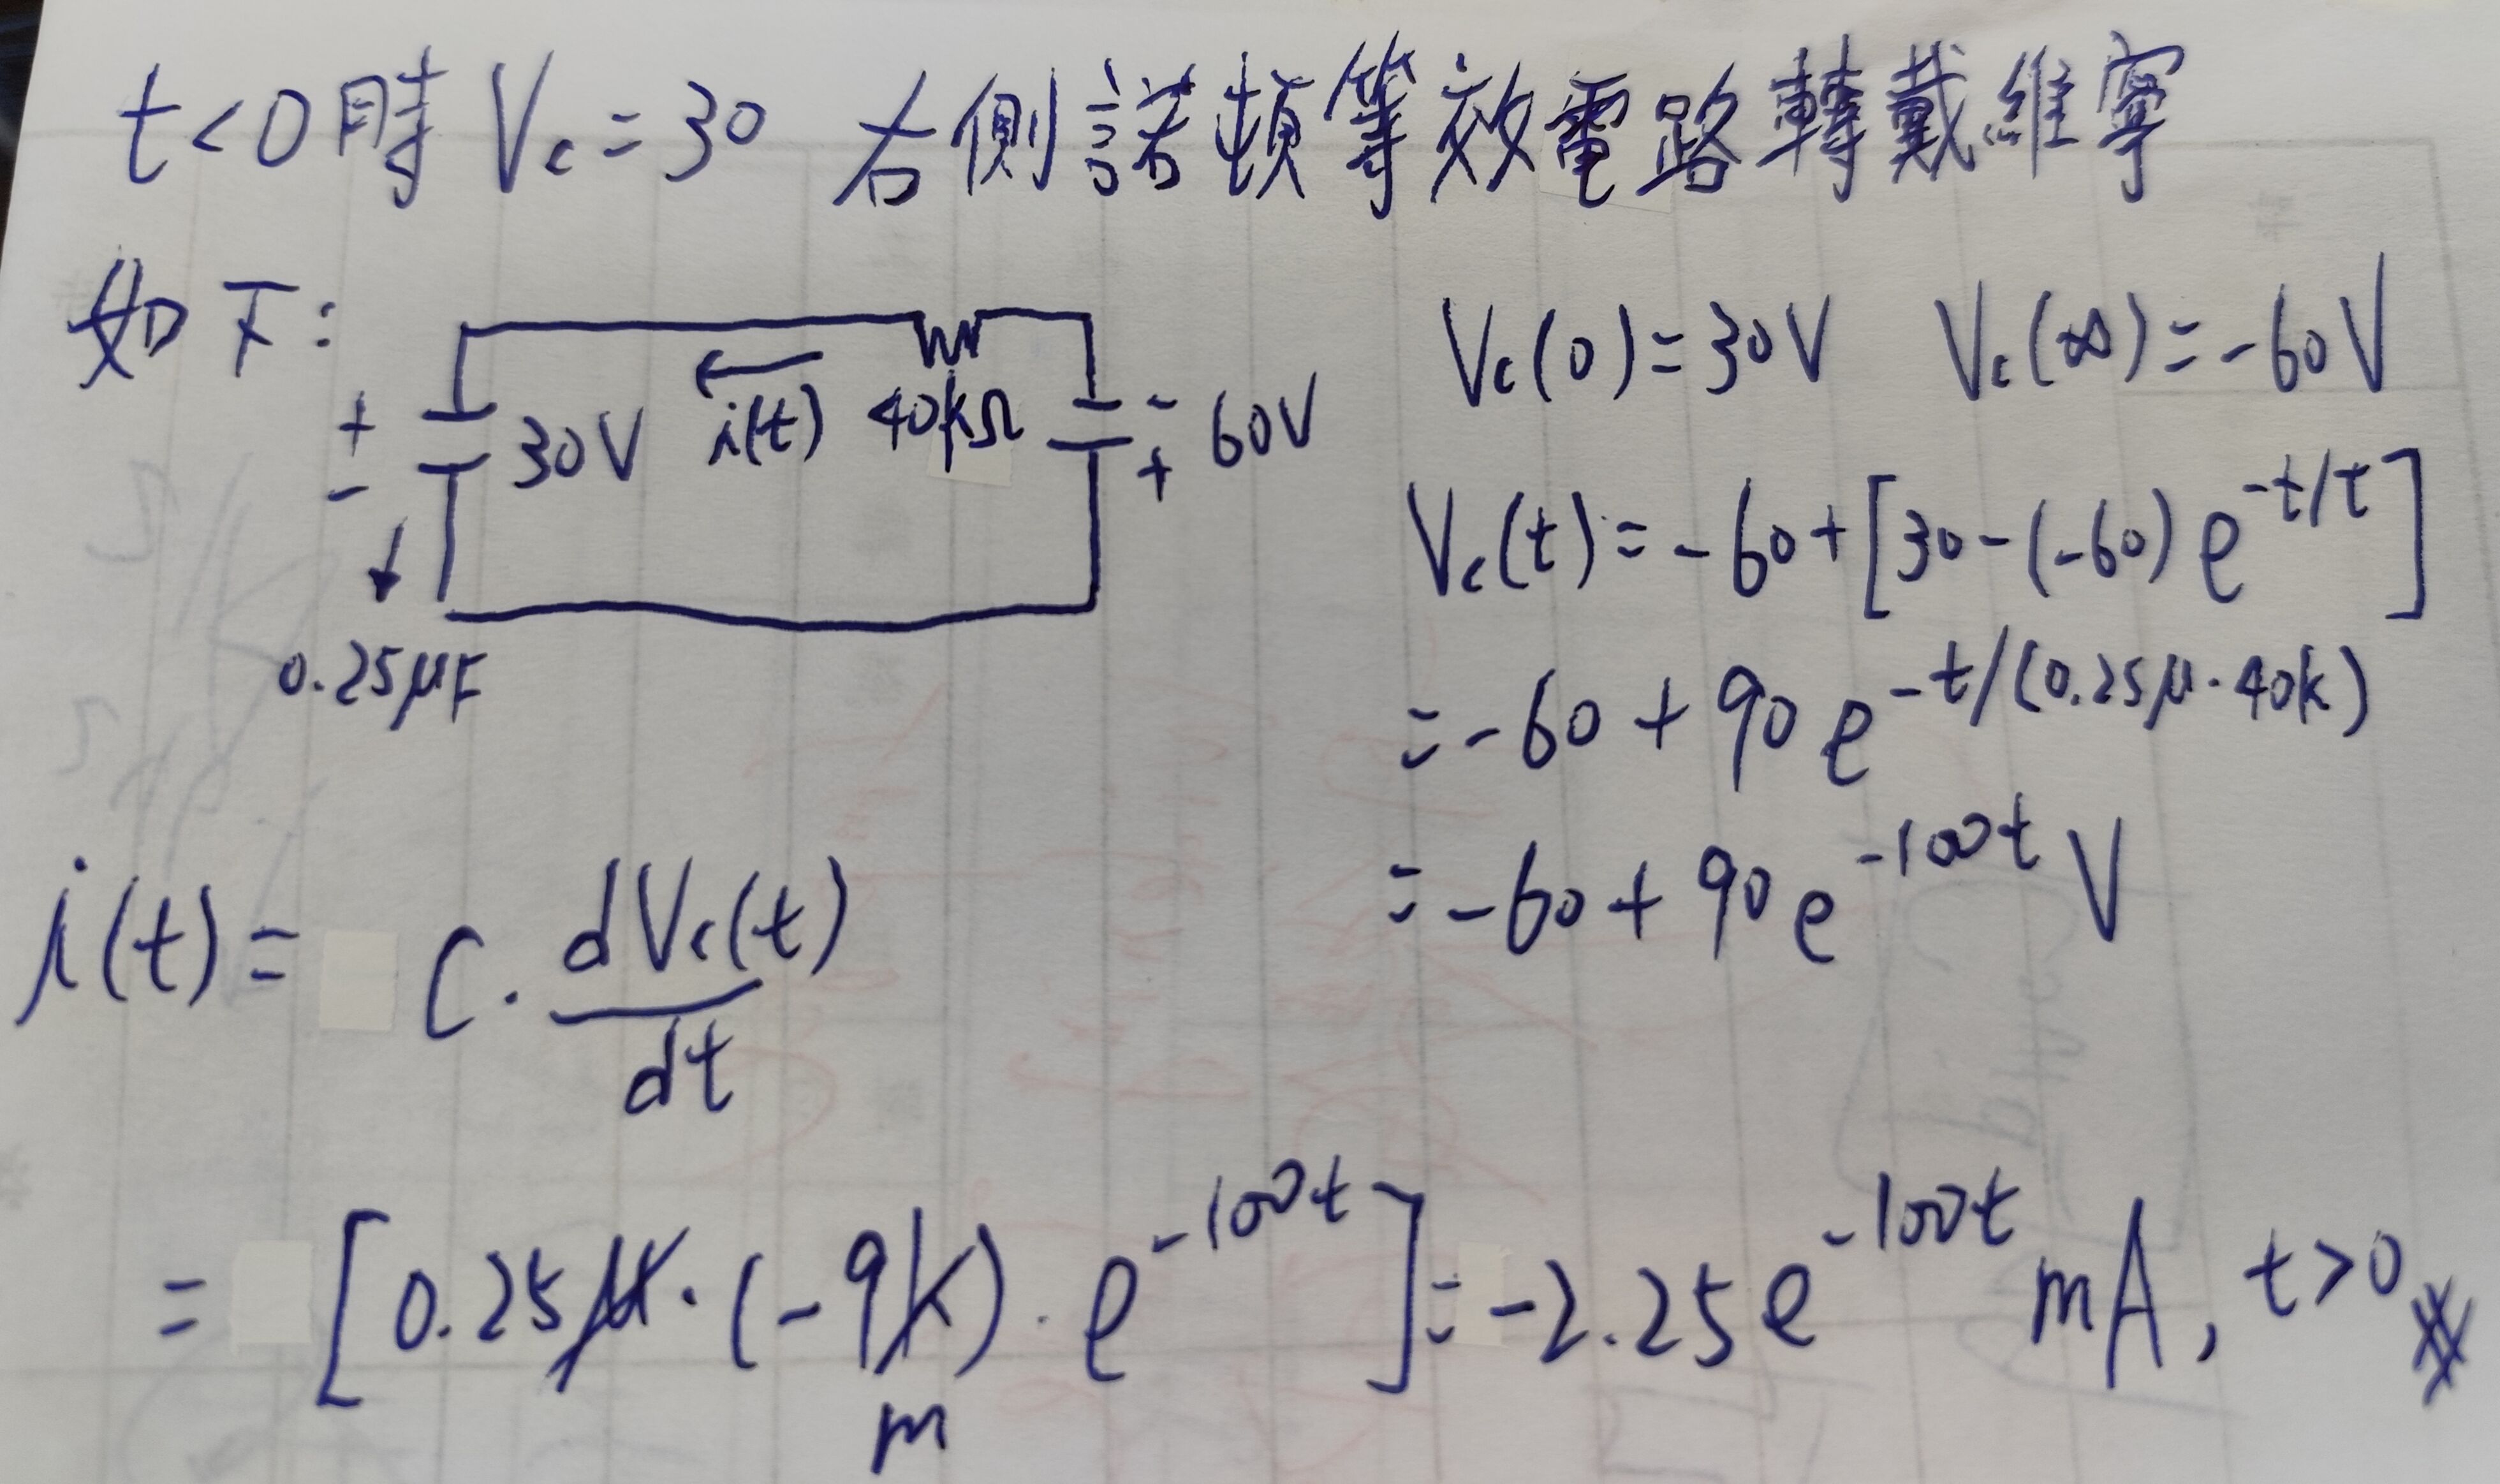 t<0時 Vc=30 右側諾頓等效電路轉戴維寧
如下:
+ - 30V i(t) 40kΩ - + 60V
0.25μF
Vc(0)=30V Vc(∞)=-60V
Vc(t)=-60+[30-(-60)e^{-t/τ}]
=-60+90e^{-t/(0.25μ·40k)}
=-60+90e^{-100t} V
i(t)= C·dVc(t)/dt
=[0.25μ·(-9k)·e^{-100t}]=-2.25e^{-100t} mA, t>0
m